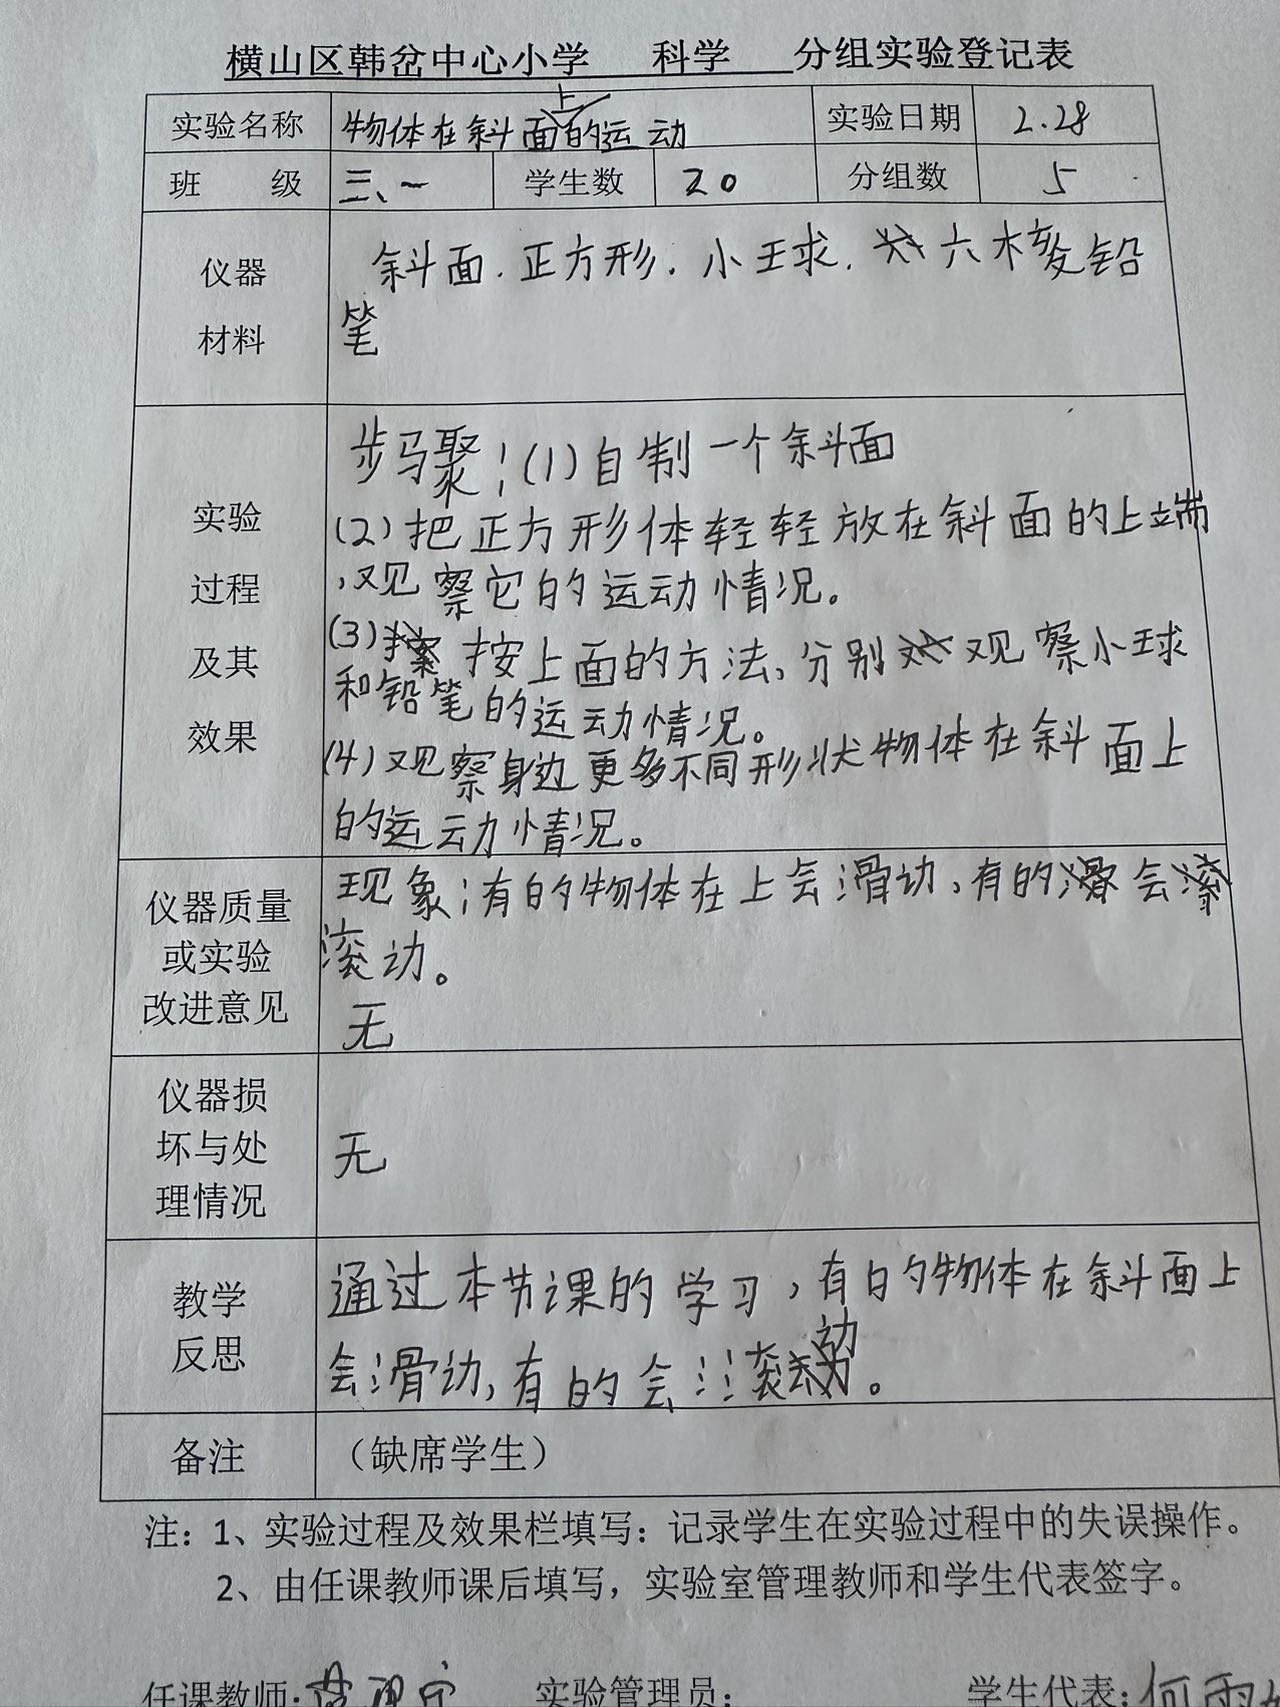 横山区韩岔中心小学 科学 分组实验登记表
实验名称 物体在斜面上的运动 实验日期 2.28
班 级 三、一 学生数 20 分组数 5
仪器 斜面.正方形.小球.六棱铅
材料 笔
步骤:(1)自制一个斜面
实验 (2)把正方形体轻轻放在斜面的上端
过程 ,观察它的运动情况。
及其 (3)按上面的方法,分别观察小球
和铅笔的运动情况。
效果 (4)观察身边更多不同形状物体在斜面上
的运动情况。
仪器质量 现象:有的物体在上会滑动,有的会
或实验 滚动。
改进意见 无
仪器损
坏与处 无
理情况
教学 通过本节课的学习,有的物体在斜面上
反思 会滑动,有的会滚动。
备注 (缺席学生)
注:1、实验过程及效果栏填写:记录学生在实验过程中的失误操作。
2、由任课教师课后填写,实验室管理教师和学生代表签字。
任课教师: 实验管理员: 学生代表:何雨